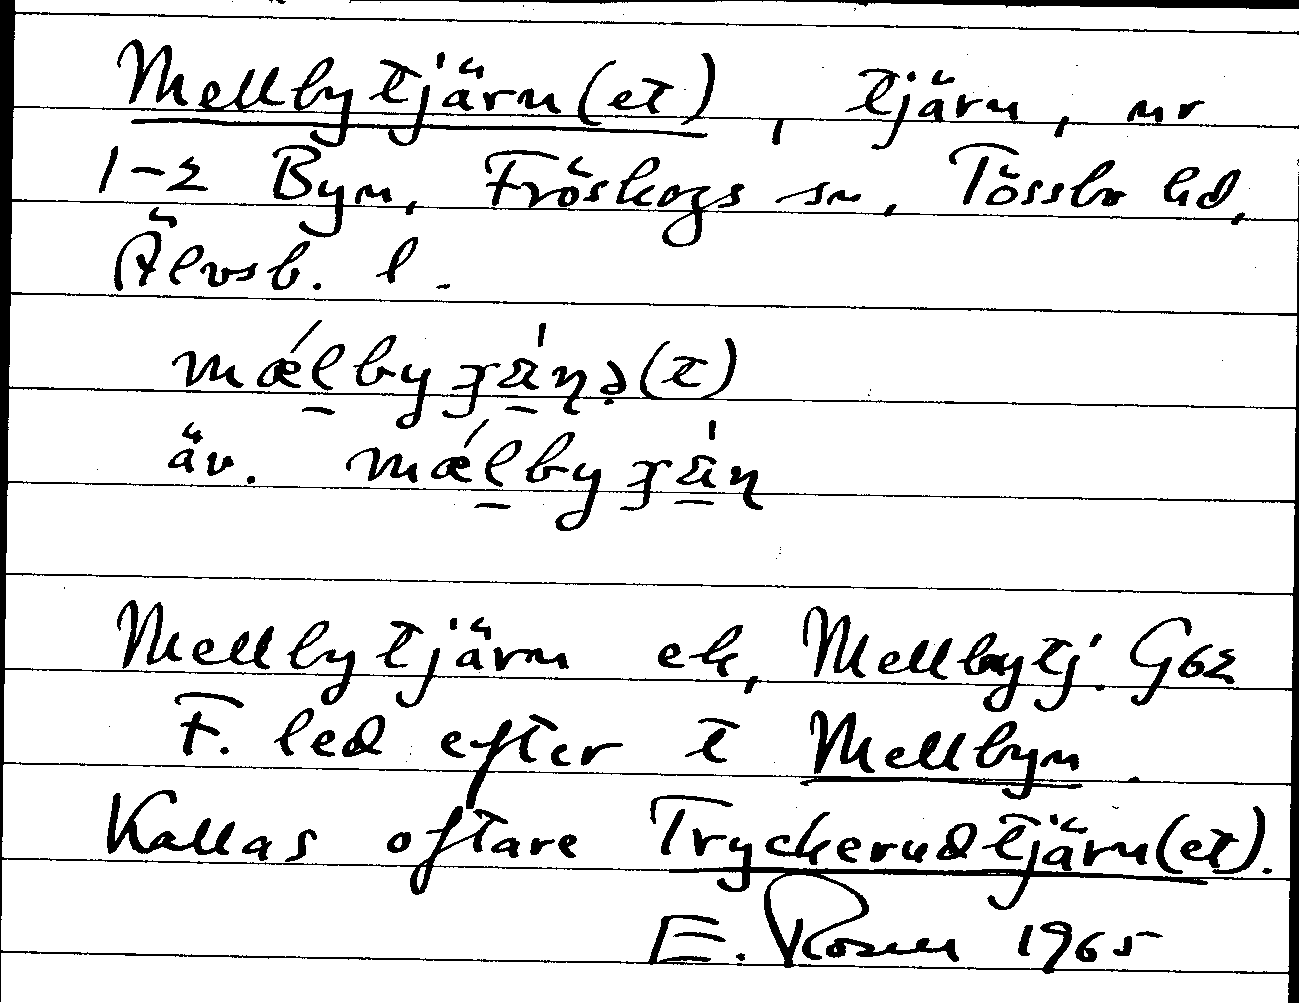 Mellbytjärn(et), tjärn, nr
1-2 Byn, Fröskogs sn, Tössbo hd,
Älvsb. l.
äv.
Mellbytjärn ek, Mellbytj. G62
F. led efter t Mellbyn.
Kallas oftare Tryckerudtjärn(et).
E. Rosen 1965